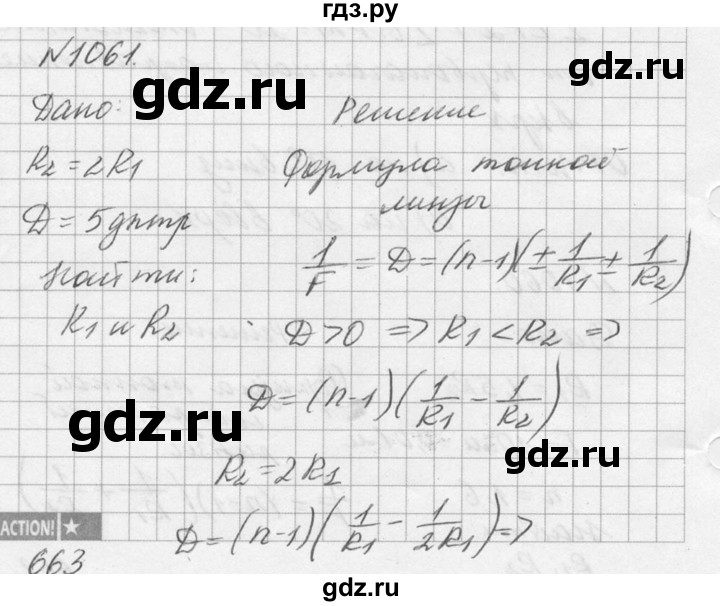 гдз.ру
№1061.
gdz.ru
gdz.ru
Дано:
Решение
R₂ = 2R₁
Формула тонкой
линзы
D = 5 дптр
Найти:
1/F = D = (n-1)(± 1/R₁ ± 1/R₂)
R₁ и R₂
D > 0 => R₁ < R₂ =>
D = (n-1)(1/R₁ - 1/R₂)
gdz.ru
gdz.ru
R₂ = 2R₁
ACTION!
D = (n-1)(1/R₁ - 1/2R₁) =>
663
gdz.ru